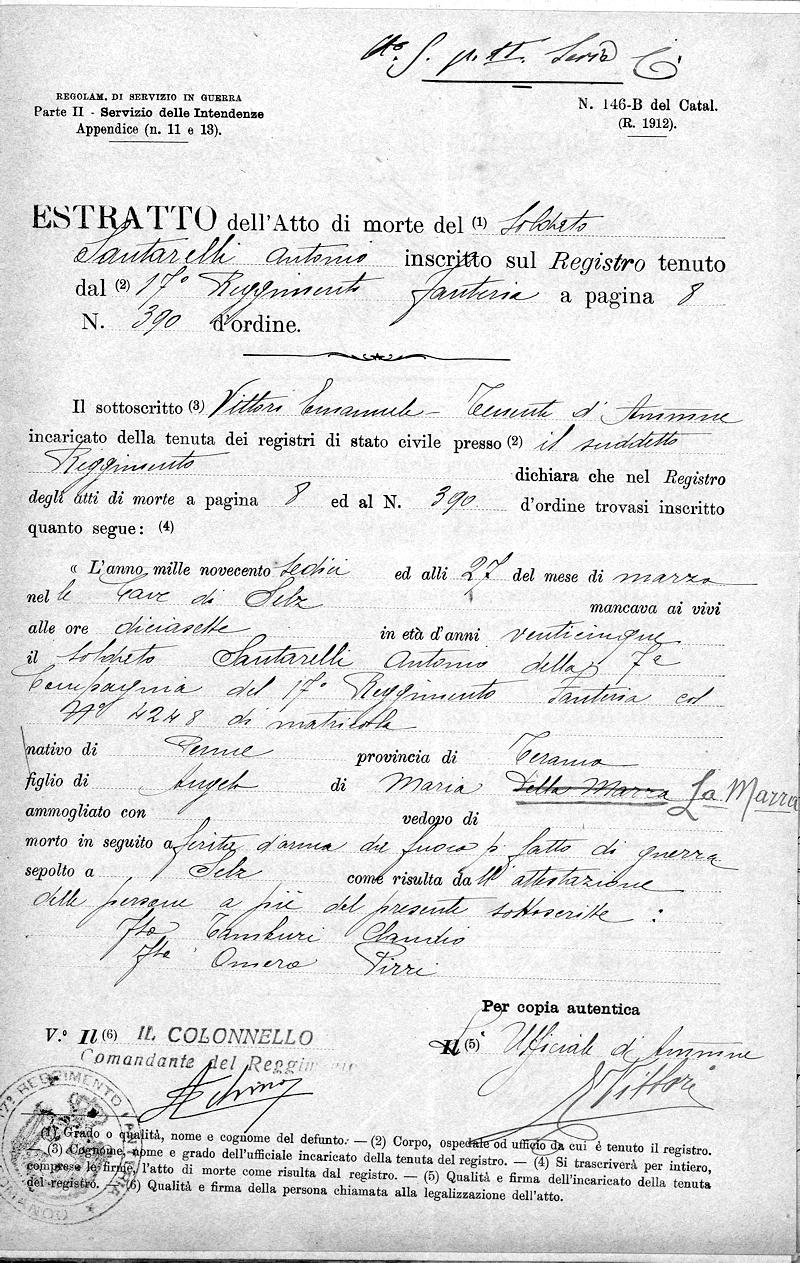 N.º 8. p. II. Serie C
REGOLAM. DI SERVIZIO IN GUERRA
Parte II - Servizio delle Intendenze
Appendice (n. 11 e 13).
N. 146-B del Catal.
(R. 1912).
ESTRATTO dell'Atto di morte del (1) Soldato
Santarelli Antonio inscritto sul Registro tenuto
dal (2) 17º Reggimento fanteria a pagina 8
N. 390 d'ordine.
Il sottoscritto (3) Vittori Emanuele - Tenente d'Ammne
incaricato della tenuta dei registri di stato civile presso (2) il suddetto
Reggimento dichiara che nel Registro
degli atti di morte a pagina 8 ed al N. 390 d'ordine trovasi inscritto
quanto segue: (4)
« L'anno mille novecento sedici ed alli 27 del mese di marzo
nel le Cave di Selz mancava ai vivi
alle ore diciasette in età d'anni venticinque
il soldato Santarelli Antonio della 7ª
Compagnia del 17º Reggimento Fanteria col
Nº 4248 di matricola
nativo di Penne provincia di Teramo
figlio di Angelo di Maria Della Marra La Marra
ammogliato con vedovo di
morto in seguito a ferita d'arma da fuoco p. fatto di guerra
sepolto a Selz come risulta dall'attestazione
delle persone a piè del presente sottoscritte :
Fto Tamburi Claudio
Fto Omero Pirri
Per copia autentica
V.º Il (6) IL COLONNELLO
Comandante del Reggimento
Il (5) Ufficiale d'Ammne
E Vittori
17º REGGIMENTO FANTERIA
(1) Grado o qualità, nome e cognome del defunto. — (2) Corpo, ospedale od ufficio da cui è tenuto il registro.
— (3) Cognome, nome e grado dell'ufficiale incaricato della tenuta del registro. — (4) Si trascriverà per intiero,
comprese le firme, l'atto di morte come risulta dal registro. — (5) Qualità e firma dell'incaricato della tenuta
del registro. — (6) Qualità e firma della persona chiamata alla legalizzazione dell'atto.